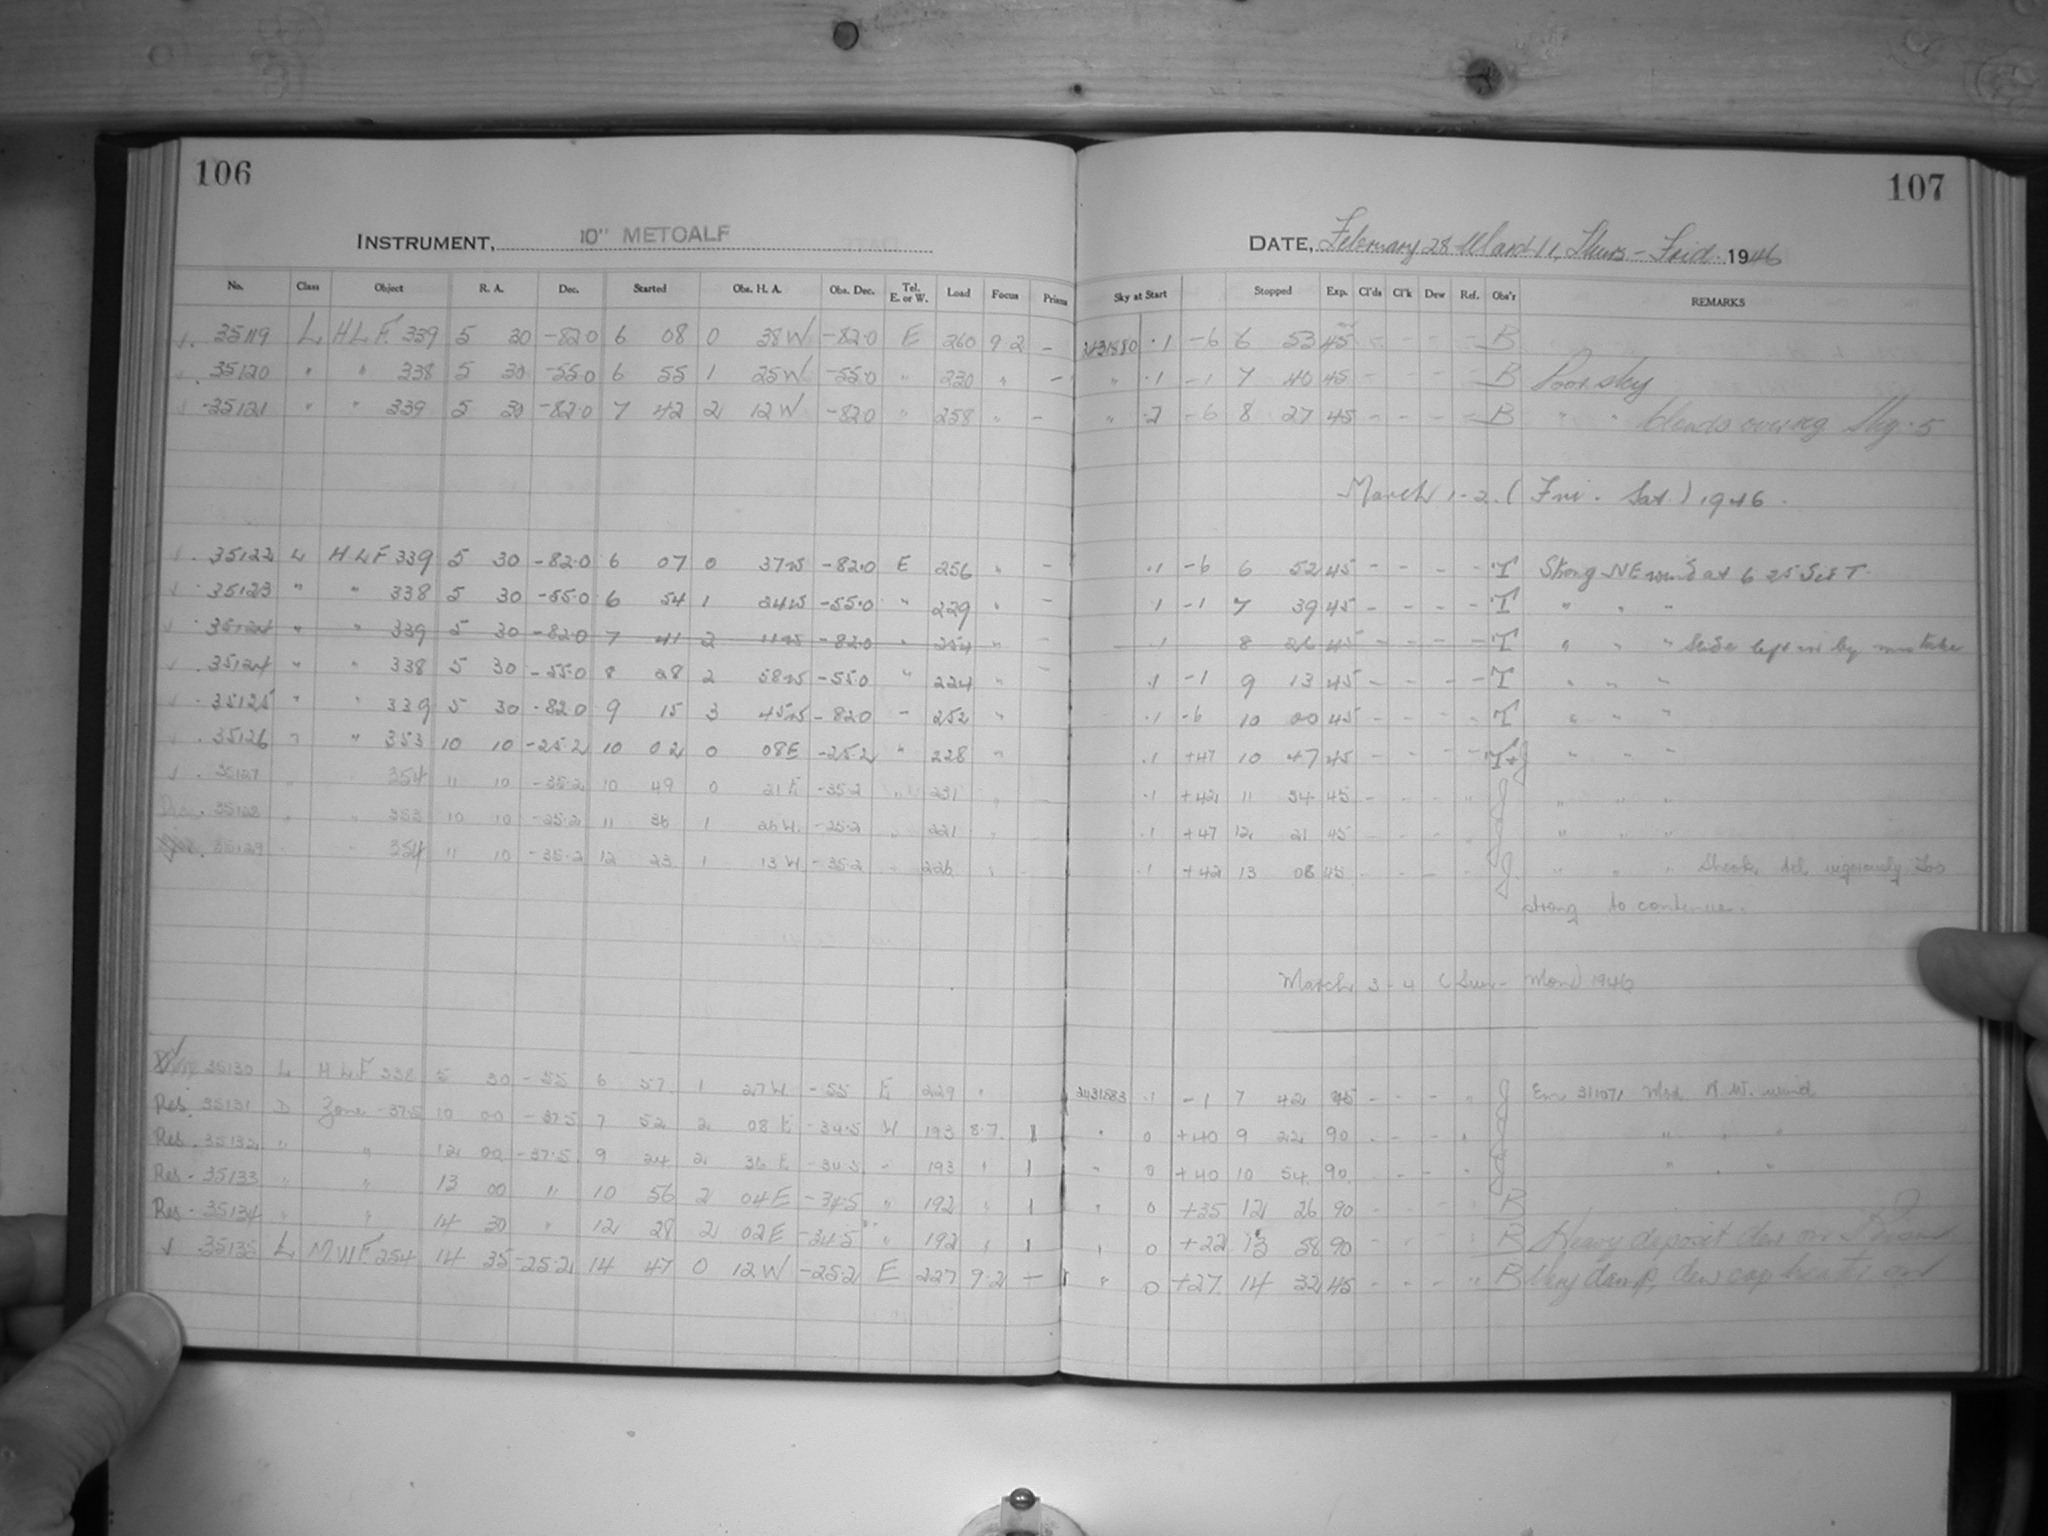 106
107
INSTRUMENT, 10" METCALF
DATE, February 28 March 1, Thurs - Frid. 1946
No. Class Object R. A. Dec. Started Obs. H. A. Obs. Dec. Tel. E. or W. Load Focus Prisms Sky at Start Stopped Exp. Cl'ds Cl'k Dew Ref. Obs'r REMARKS
35119 L HLF. 339 5 30 -82.0 6 08 0 38W -82.0 E 260 9.2 - 2431880 .1 -6 6 53 45 - - - - B
35120 " " 338 5 30 -55.0 6 55 1 25W -55.0 " 230 " - " .1 -1 7 40 45 - - - - B Poor sky
35121 " " 339 5 30 -82.0 7 42 2 12W -82.0 " 258 " - " .2 -6 8 27 45 - - - - B " " Clouds over
March 1-2. (Fri. Sat.) 1946.
35122 L HLF 339 5 30 -82.0 6 07 0 37W -82.0 E 256 " - .1 -6 6 52 45 - - - - T Strong NE wind at 6 25 Sid T.
35123 " " 338 5 30 -55.0 6 54 1 24W -55.0 " 229 " - .1 -1 7 39 45 - - - - T " " "
35124 " " 339 5 30 -82.0 7 41 2 11W -82.0 " 254 " - .1 8 26 45 - - - - T " " " Slide left in by mistake
35124 " " 338 5 30 -55.0 8 28 2 58W -55.0 " 224 " - .1 -1 9 13 45 - - - - T " " "
35125 " " 339 5 30 -82.0 9 15 3 45W -82.0 - 252 " .1 -6 10 00 45 - - - - T " " "
35126 " " 353 10 10 -25.2 10 02 0 08E -25.2 " 228 " .1 +47 10 47 45 - - - - T+J " " "
35127 " " 354 11 10 -35.2 10 49 0 21E -35.2 " 231 " - .1 +42 11 34 45 - - - " J " " "
35128 " " 353 10 10 -25.2 11 36 1 26W. -25.2 " 221 " - .1 +47 12 21 45 - - - " J " " "
35129 " " 354 11 10 -35.2 12 23 1 13W. -35.2 " 226 " - .1 +42 13 08 45 - - - " J " " " Shook tel. vigorously Too
strong to continue.
March 3-4 (Sun- Mon) 1946
35130 L HLF 338 5 30 -55 6 57 1 27W. -55 E 229 " 2431883 .1 -1 7 42 45 - - - " J Em. 31107, Mod. N.W. wind
Res. 35131 D Zone -37.5 10 00 -37.5 7 52 2 08E -34.5 W 193 8.7. 1 " 0 +40 9 22 90 - - - " J " " "
Res. 35132 " " 12 00 -37.5 9 24 2 36E -34.5 " 193 " 1 " 0 +40 10 54 90 - - - " J " " "
Res. 35133 " " 13 00 " 10 56 2 04E -34.5 " 192 " 1 " 0 +35 12 26 90 - - - " B
Res. 35134 " " 14 30 " 12 28 2 02E -34.5 " 192 " 1 " 0 +22 13 58 90 - - - " B Heavy deposit dew on Prism
35135 L M.W.F. 254 14 35 -25.2 14 47 0 12W -25.2 E 227 9.2 - " 0 +27 14 32 45 - - - " B Very damp, dew cap heater on